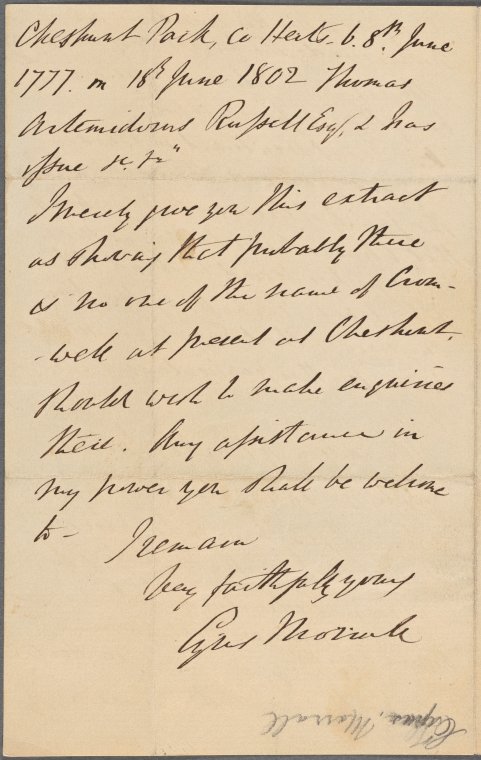 Cheshunt Park, Co Herts. b. 8th June
1777. m 18th June 1802 Thomas
Artemidorus Russell Esq, & has
issue &c. &c"
I merely give you this extract
as showing that probably there
is no one of the name of Crom-
-well at present at Cheshunt.
Should wish to make enquiries
there. Any assistance in
my power you shall be welcome
to -
I remain
Very faithfully yours
Cyrus Morrall
Cyrus Morrall